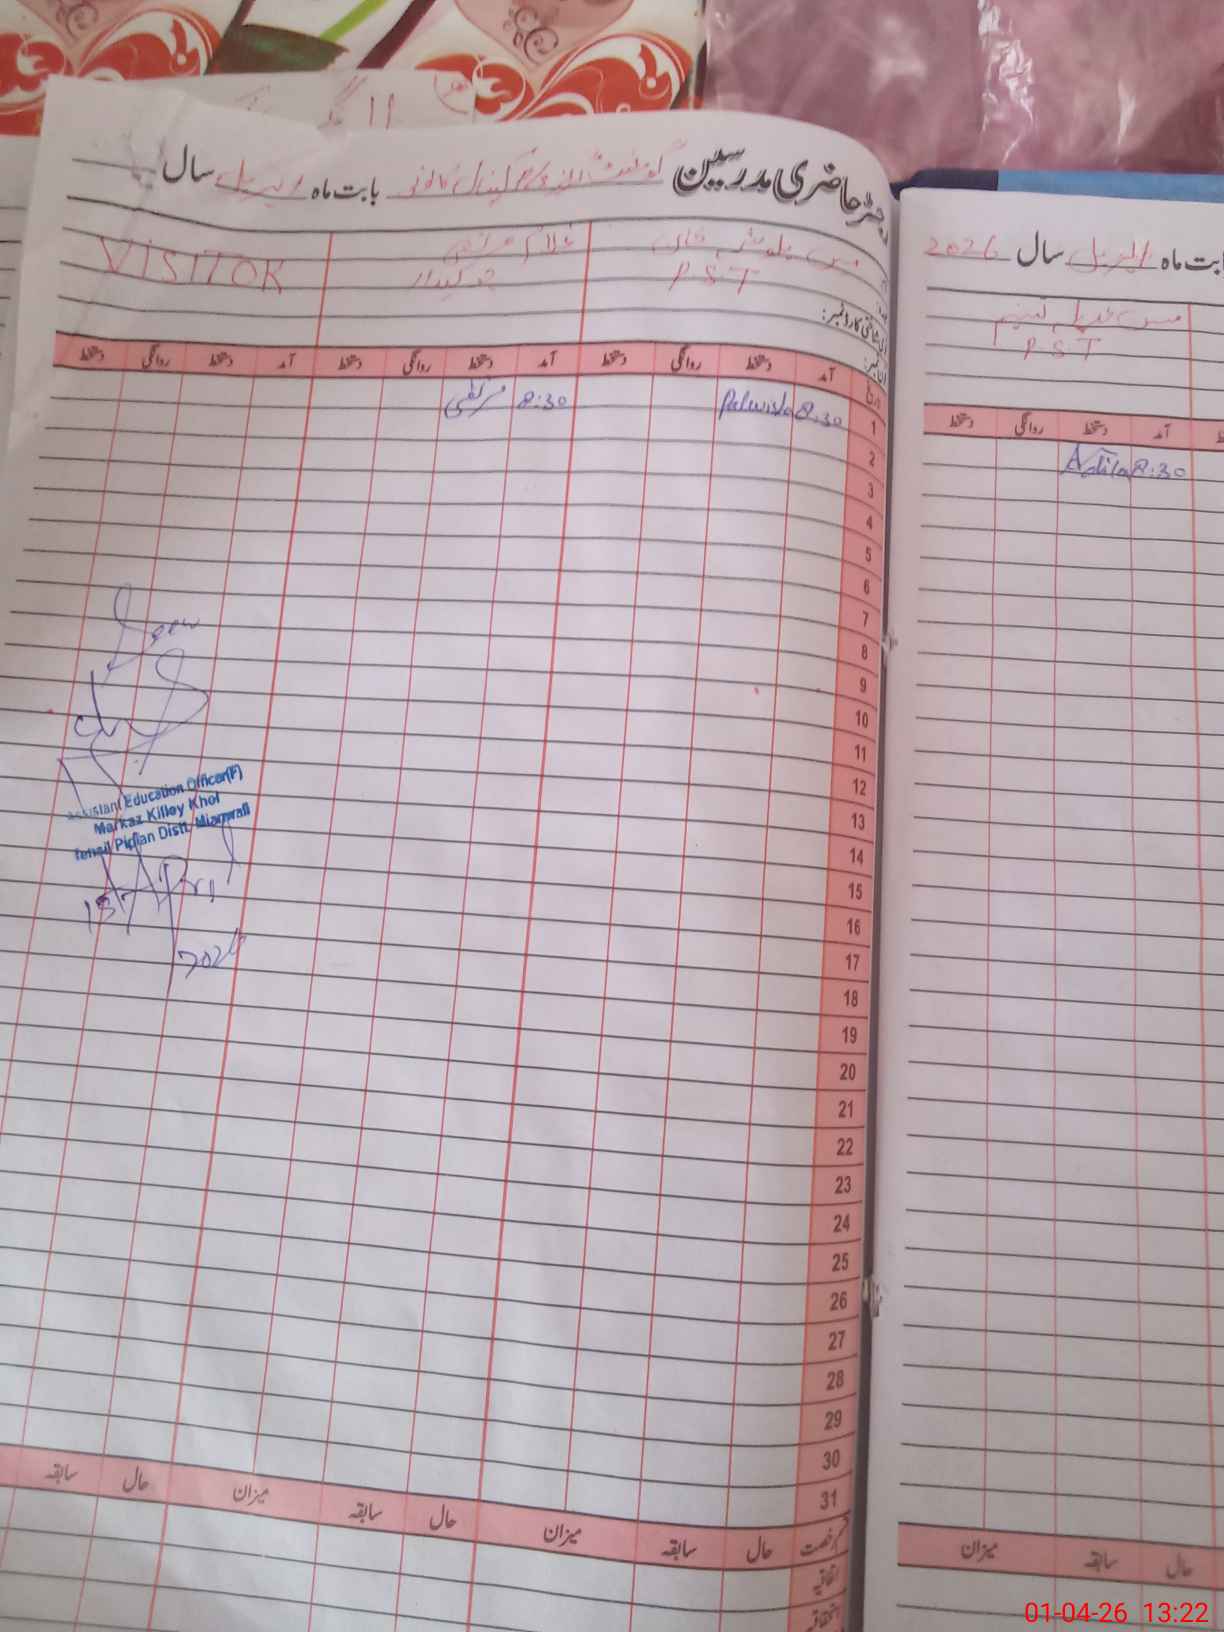 رجسٹر حاضری مدرسین گورنمنٹ بابت ماہ اپریل سال
مس پلوشہ
غلام مرتضیٰ
VISITOR
PST
چوکیدار
شناختی کارڈ نمبر:
تاریخ آمد دستخط روانگی دستخط آمد دستخط روانگی دستخط آمد دستخط روانگی دستخط
1 8:30 Palwisha 8:30 مرتضیٰ
2
3
4
5
6
7
8
9
10
11
12
13
14
15
16
17
18
19
20
21
22
23
24
25
26
27
28
29
30
31
Seen
Assistant Education Officer(F)
Markaz Killoy Khel
Tehsil Piplan Distt. Mianwali
1st April
2026
رخصت حال سابقہ میزان حال سابقہ میزان حال سابقہ
اتفاقیہ
استحقاقیہ
بابت ماہ اپریل سال 2026
مس
PST
آمد دستخط روانگی دستخط
8:30 Adila
حال سابقہ میزان
01-04-26 13:22